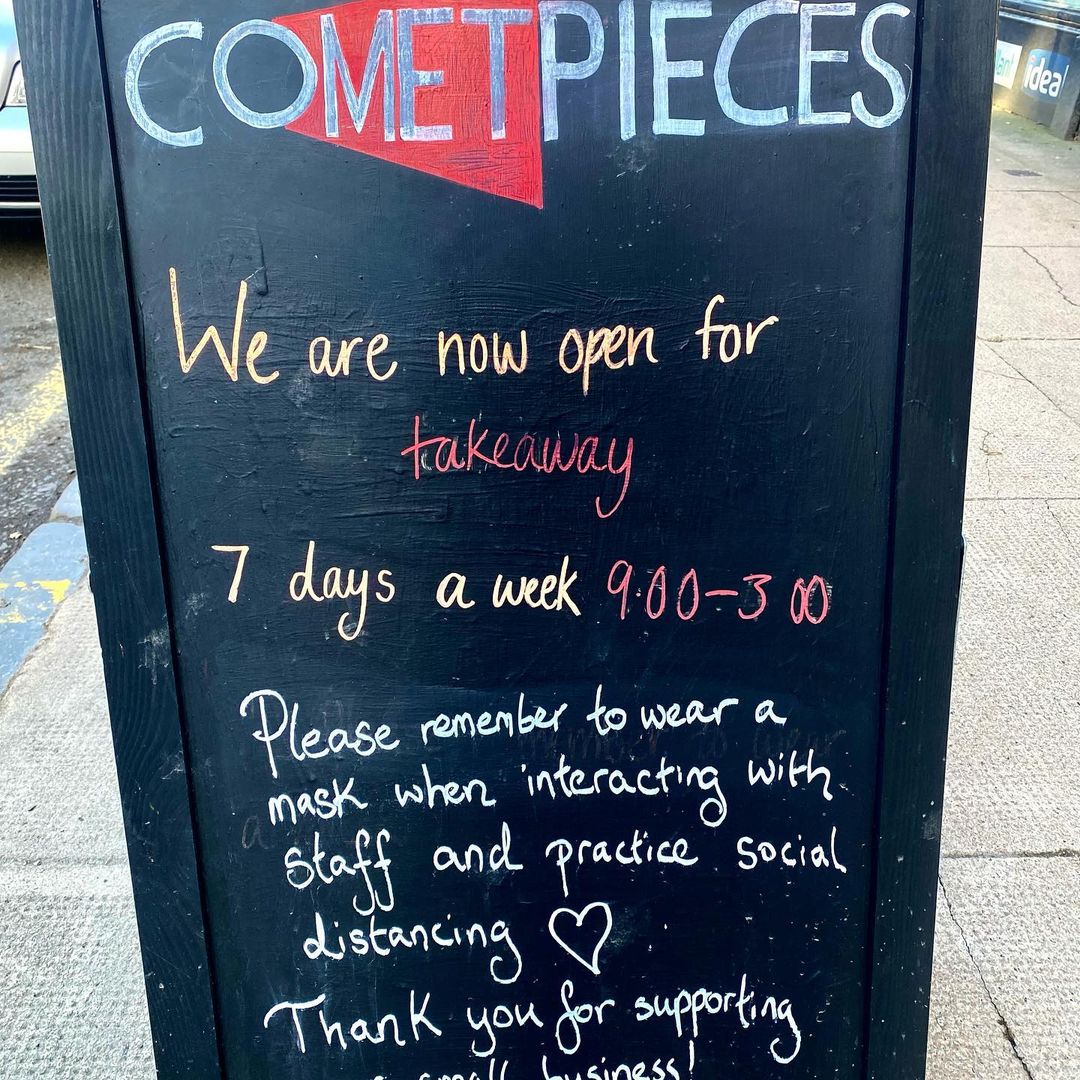 COMETPIECES
We are now open for
takeaway
7 days a week 9:00-3 00
Please remember to wear a
mask when interacting with
staff and practice social
distancing ♡
Thank you for supporting
a small business!
idea